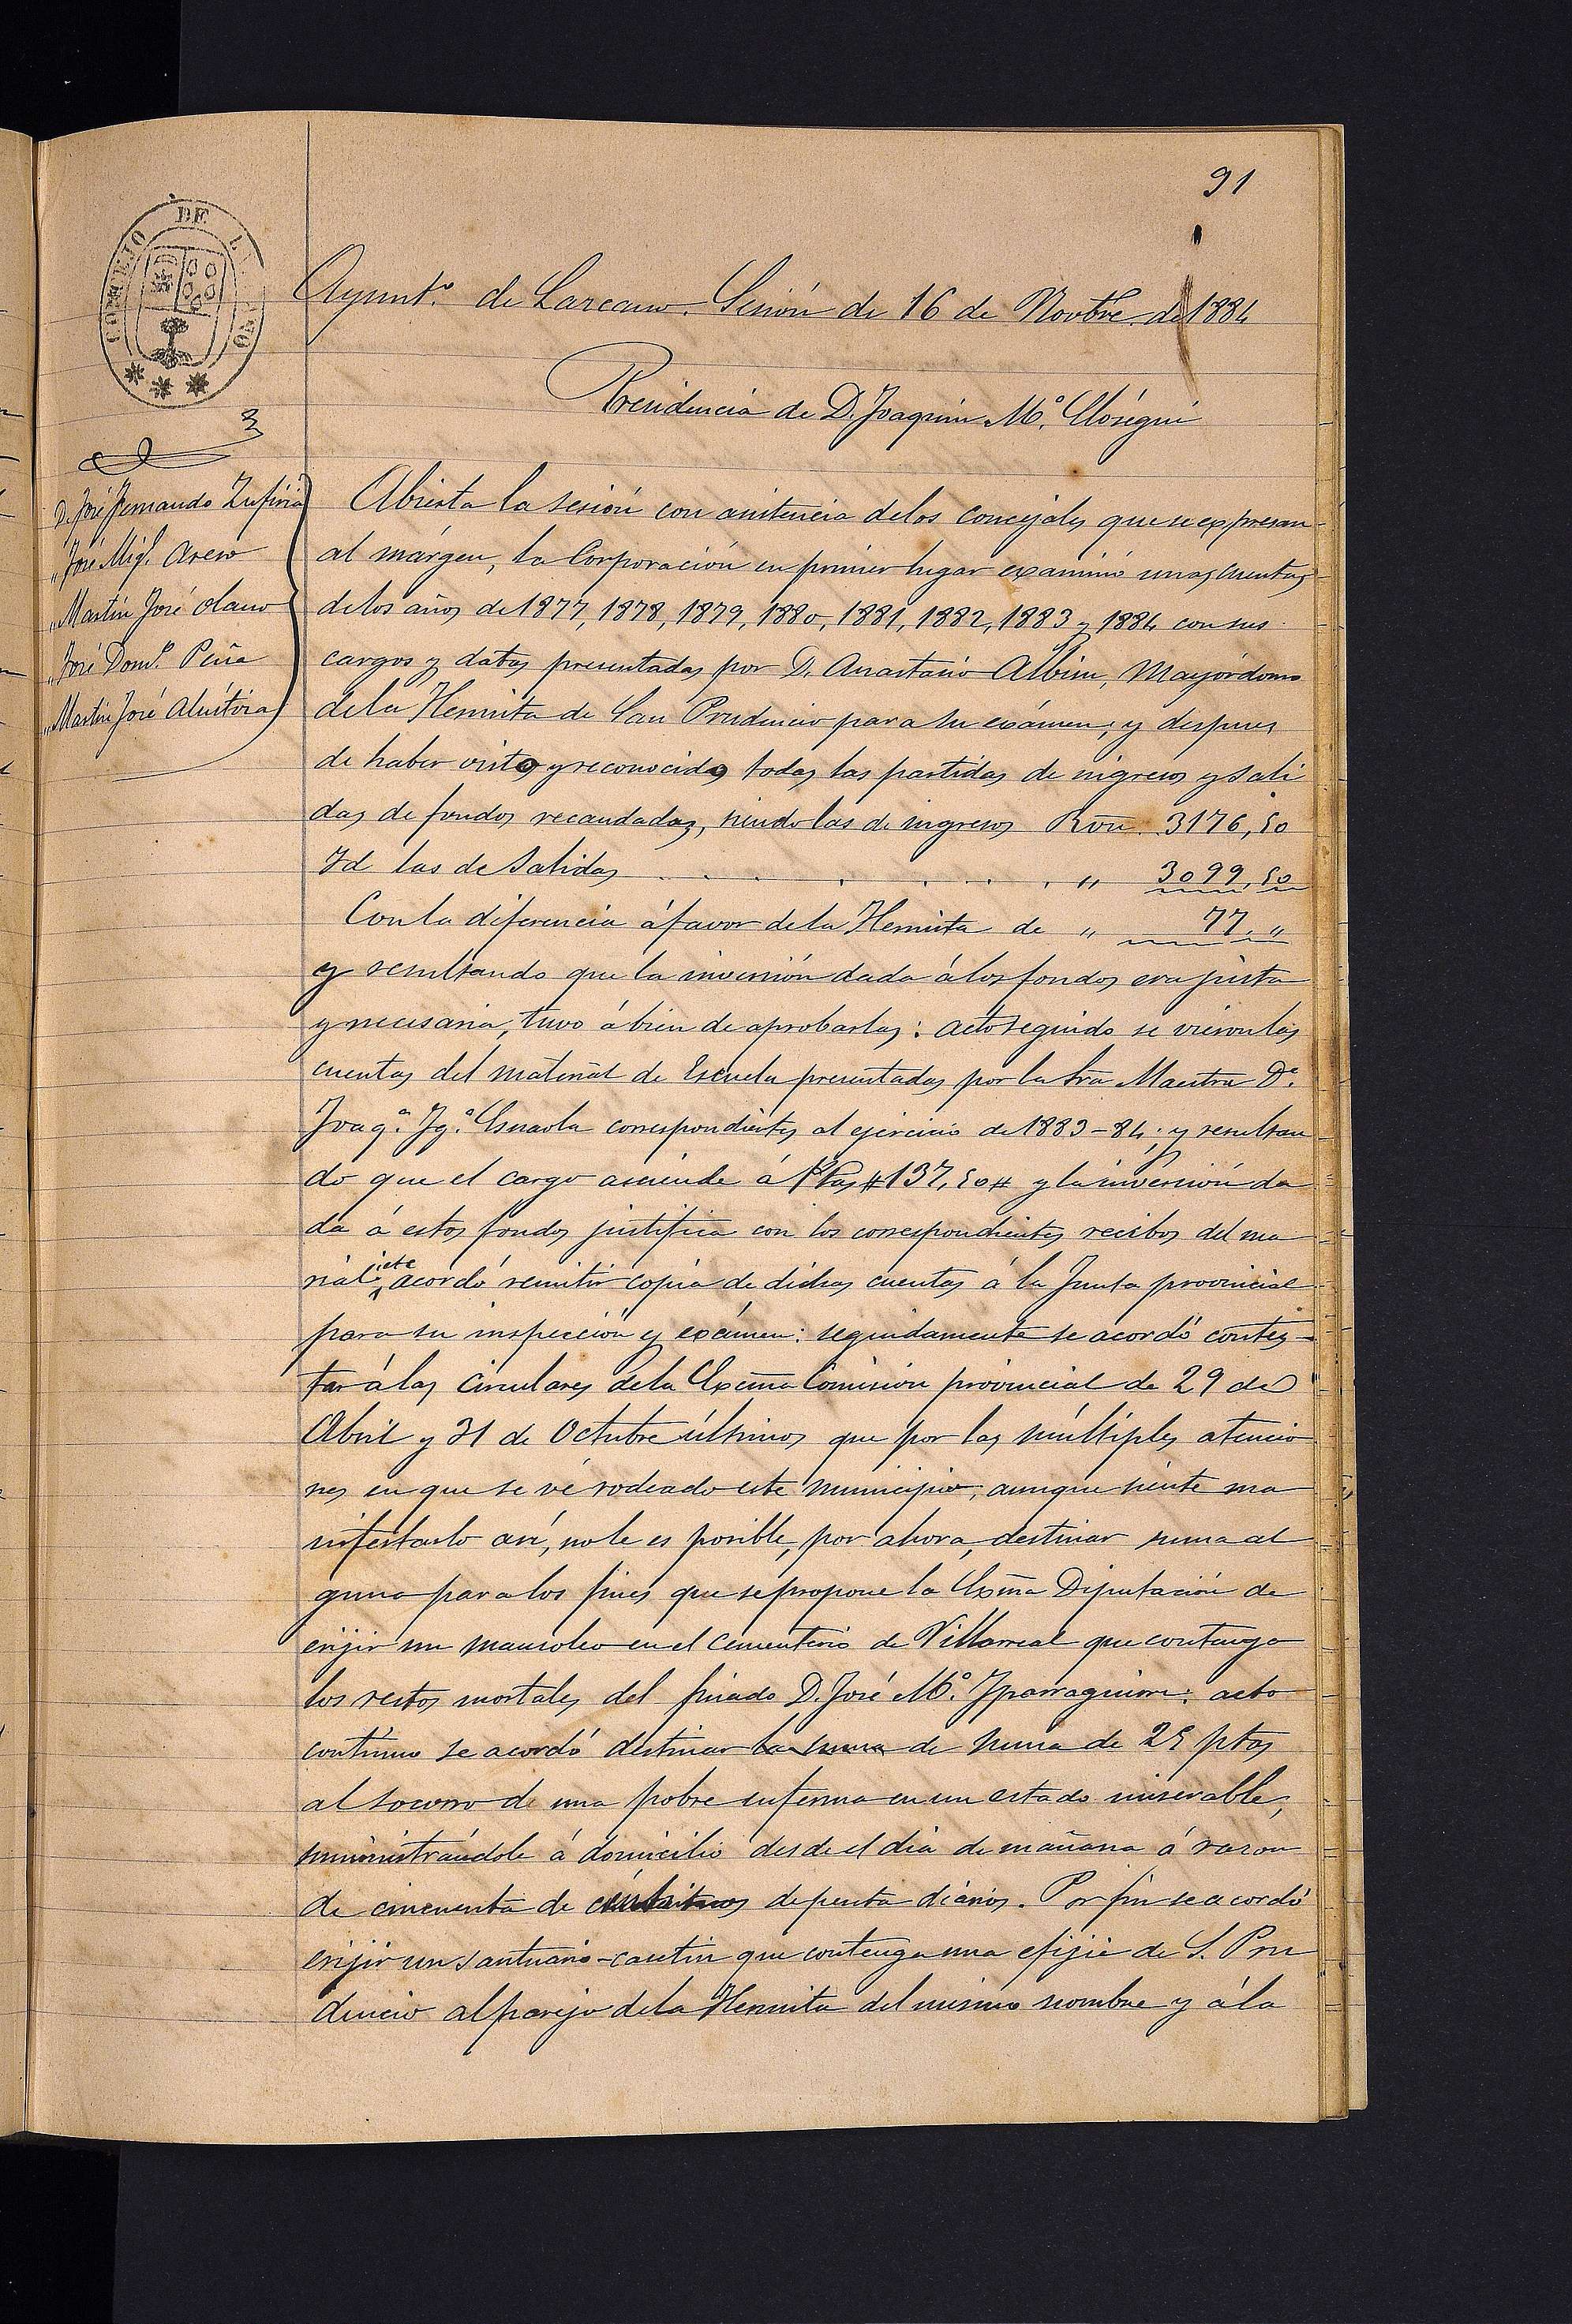 91
CONCEJO DE L
Ayunt.º de Lazcano. Sesión de 16 de Novbre. de 1884
Presidencia de D. Joaquin M.º Elósegui
D. José Fernando Zufiria
„ José Mig.l Areso
„ Martin José Olano
„ José Dom.º Peña
„ Martin José Alustiza
Abierta la sesión con asistencia de los concejales que se expresan
al márgen, la Corporación en primer lugar examinó unas cuentas
de los años de 1877, 1878, 1879, 1880, 1881, 1882, 1883 y 1884 con sus
cargos y datas presentadas por D. Anastasio Albisu, Mayórdomo
de la Hermita de San Prudencio para su exámen; y despues
de haber visto y reconocido todas las partidas de ingresos y sali
das de fondos recaudadas, siendo las de ingresos Rvn. 3176,50
Id las de Salidas . . . . . . „ 3099,50
Con la diferencia á favor de la Hermita de „ 77. „
y resultando que la inversión dada á los fondos era justa
y necesaria, tuvo á bien de aprobarlas: acto seguido se vieron las
cuentas del material de Escuela presentadas por la Sra Maestra D.ª
Joaq.ª Ig.ª Usnaola correspondientes al ejercicio de 1883-84; y resultan
do que el cargo asciende á Ptas # 137,50 # y la inversión da
da á estos fondos justifica con los correspondientes recibos del ma
rial, acordó remitir copia de dichas cuentas á la Junta provincial
para su inspección y exámen: seguidamente se acordó contes-
tar á las circulares de la Excma Comisión provincial de 29 de
Abril y 31 de Octubre últimos que por las múltiples atencio
nes en que se vé rodeado este municipio, aunque siente ma
nifestarlo asi, no le es posible, por ahora, destinar suma al
guna para los fines que se propone la Exma Diputación de
erijir un mausoleo en el Cementerio de Villarreal que contenga
los restos mortales del finado D. José M.º Yparraguirre: acto
contínuo se acordó destinar la suma de suma de 25 ptas
al socorro de una pobre enferma en un estado miserable,
suministrándole á domicilio desde el dia de mañana á razon
de cincuenta de céntimos de peseta diarios. Por fin se acordó
erijir un santuario-cautin que contenga una efijie de S. Pru
dencio al parejo de la Hermita del mismo nombre y á la